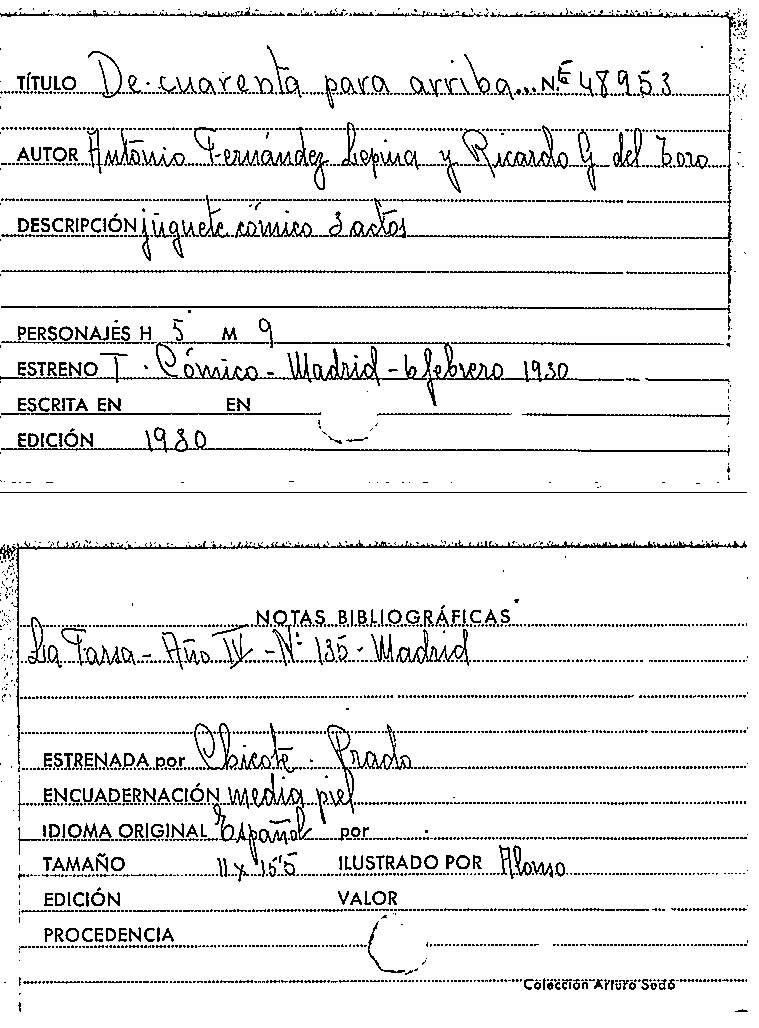 TÍTULO De cuarenta para arriba... N.E 48953
AUTOR Antonio Fernández Lepina y Ricardo G del Toro
DESCRIPCIÓN juguete cómico 3 actos
PERSONAJES H 5 M 9
ESTRENO T. Cómico - Madrid - 6 febrero 1930
ESCRITA EN EN
EDICIÓN 1930
NOTAS BIBLIOGRÁFICAS
La Farsa - Año IV - Nº 135 - Madrid
ESTRENADA por Chicote - Prado
ENCUADERNACIÓN media piel
IDIOMA ORIGINAL Español por
TAMAÑO 11 x 15'5 ILUSTRADO POR Alonso
EDICIÓN VALOR
PROCEDENCIA
Colección Arturo Sedó